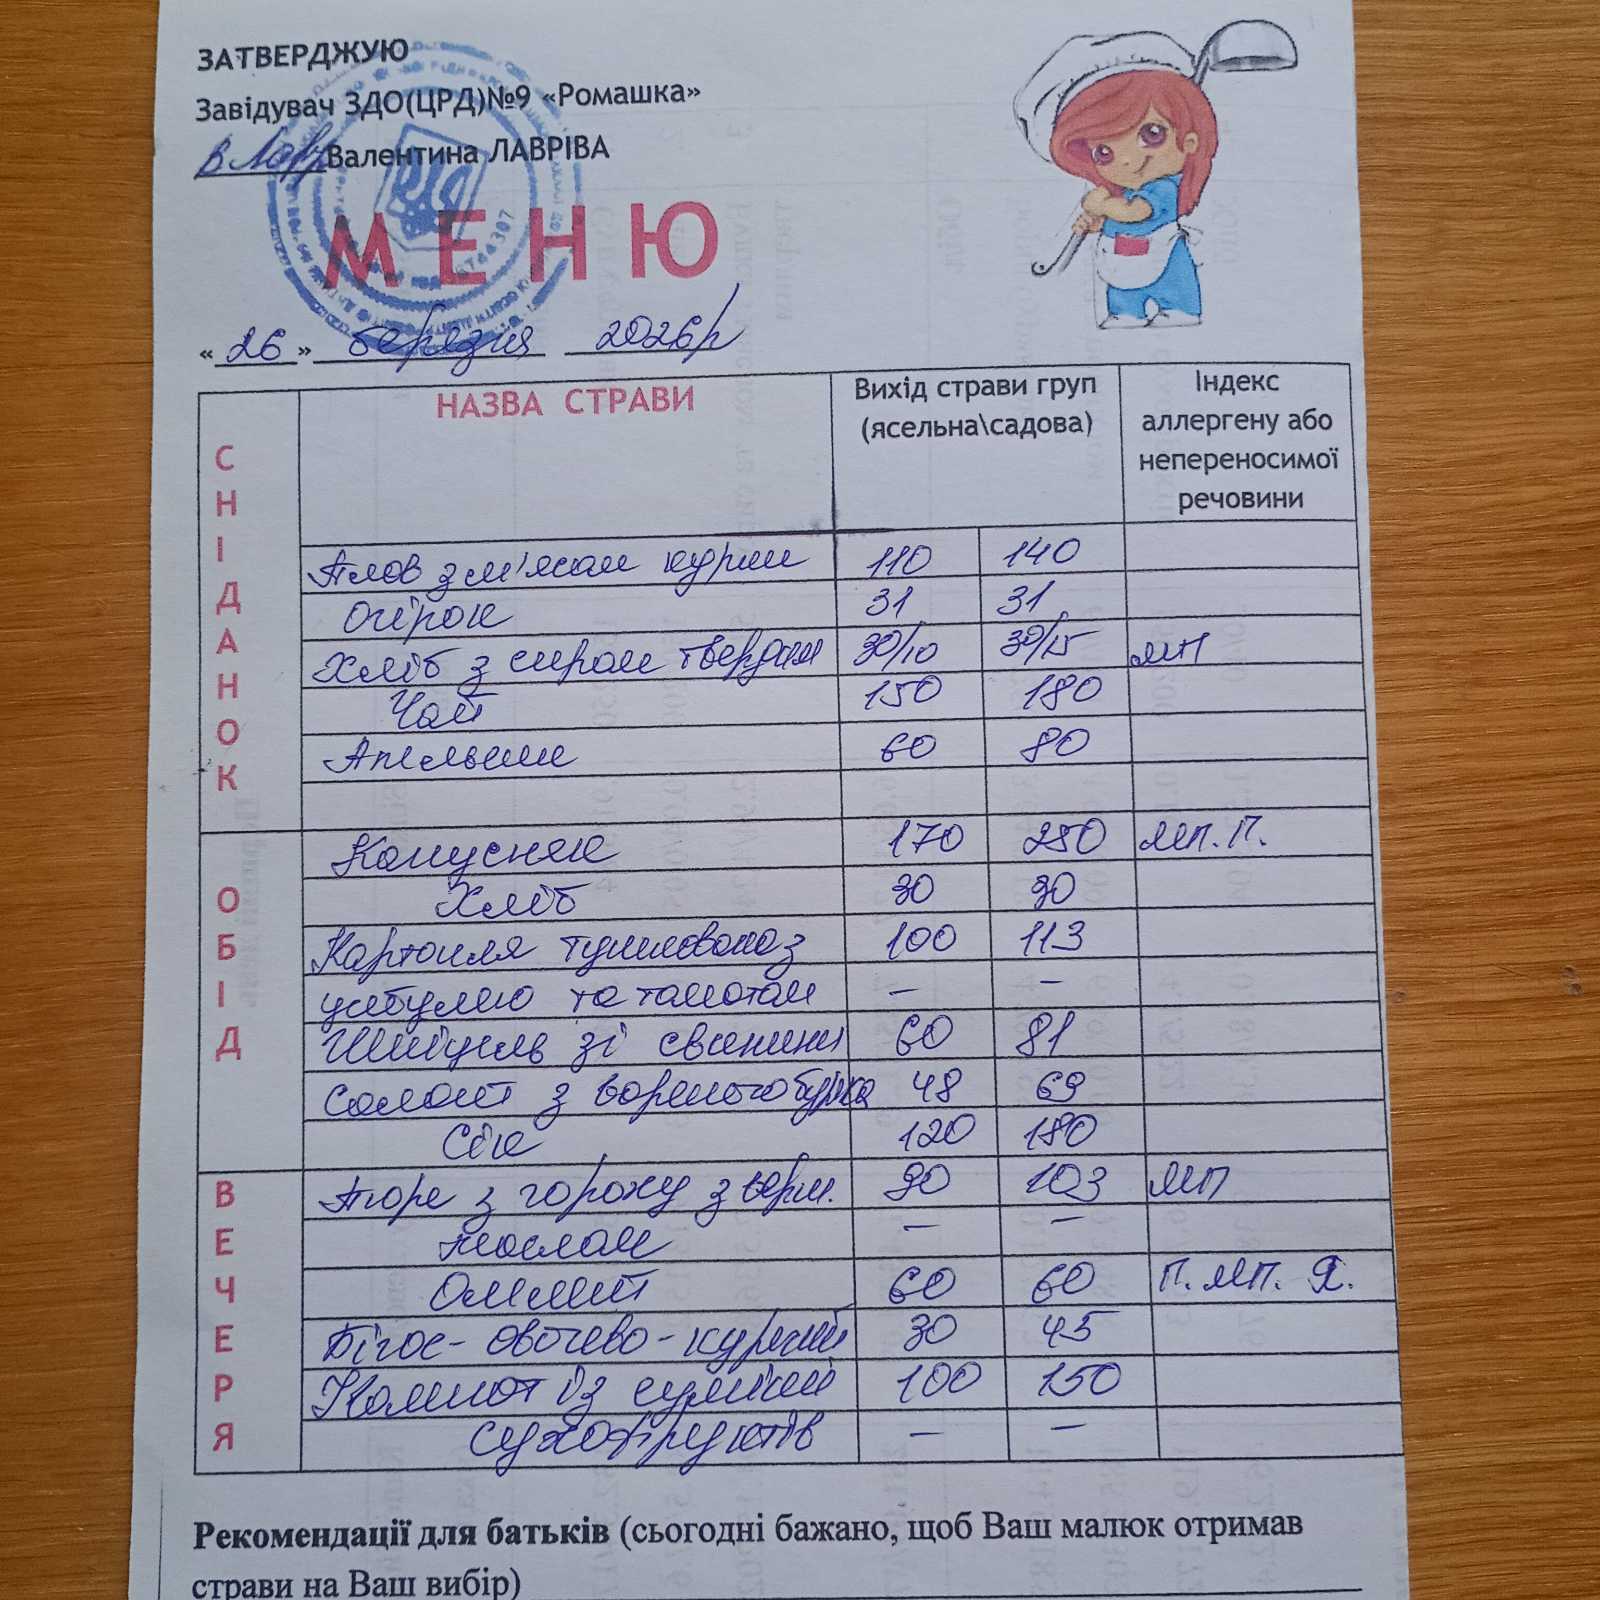 ЗАТВЕРДЖУЮ
Завідувач ЗДО(ЦРД)№9 «Ромашка»
В Лавр Валентина ЛАВРІВА
МЕНЮ
«26» березня 2026р
СНІДАНОК
НАЗВА СТРАВИ
Вихід страви груп (ясельна\садова)
Індекс аллергену або непереносимої речовини
Плов з м'ясом курки 110 140
Огірок 31 31
Хліб з сиром твердим 30/10 30/15 МП
Чай 150 180
Апельсин 60 80
ОБІД
Капусняк 170 250 МП. П.
Хліб 30 30
Картопля тушкована з 100 113
цибулею та томатом — —
Шніцель зі свинини 60 81
Салат з вареного буряка 48 69
Сік 120 180
ВЕЧЕРЯ
Пюре з гороху з верш. 90 103 МП
маслом — —
Омлет 60 60 П. МП. Я.
Бігос-овочево-курячий 30 45
Компот із суміші 100 150
сухофруктів — —
Рекомендації для батьків (сьогодні бажано, щоб Ваш малюк отримав
страви на Ваш вибір)